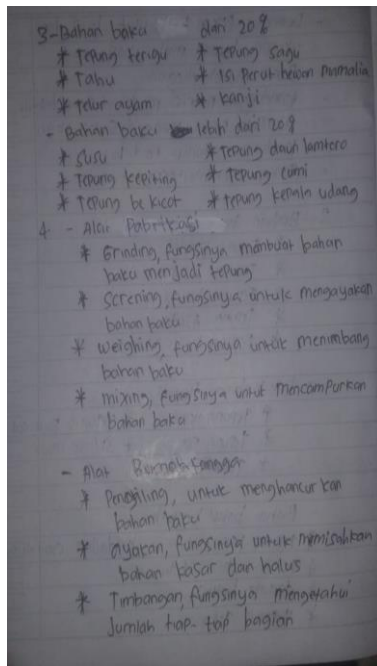 3-Bahan baku dari 20%
* Tepung terigu * Tepung sagu
* Tahu * Isi perut hewan mamalia
* Telur ayam * Kanji
- Bahan baku lebih dari 20%
* susu * Tepung daun lamtoro
* Tepung kepiting * Tepung cumi
* Tepung bekicot * tepung kepala udang
4. - Alat Pabrikasi
* Grinding, fungsinya membuat bahan
baku menjadi tepung
* Screning, fungsinya untuk mengayakan
bahan baku
* weighing, fungsinya untuk menimbang
bahan baku
* mixing, fungsinya untuk mencampurkan
bahan baku
- Alat
* Pengiling, untuk menghancurkan
bahan baku
* ayakan, fungsinya untuk memisahkan
bahan kasar dan halus
* Timbangan, fungsinya mengetahui
Jumlah tiap-tiap bagian